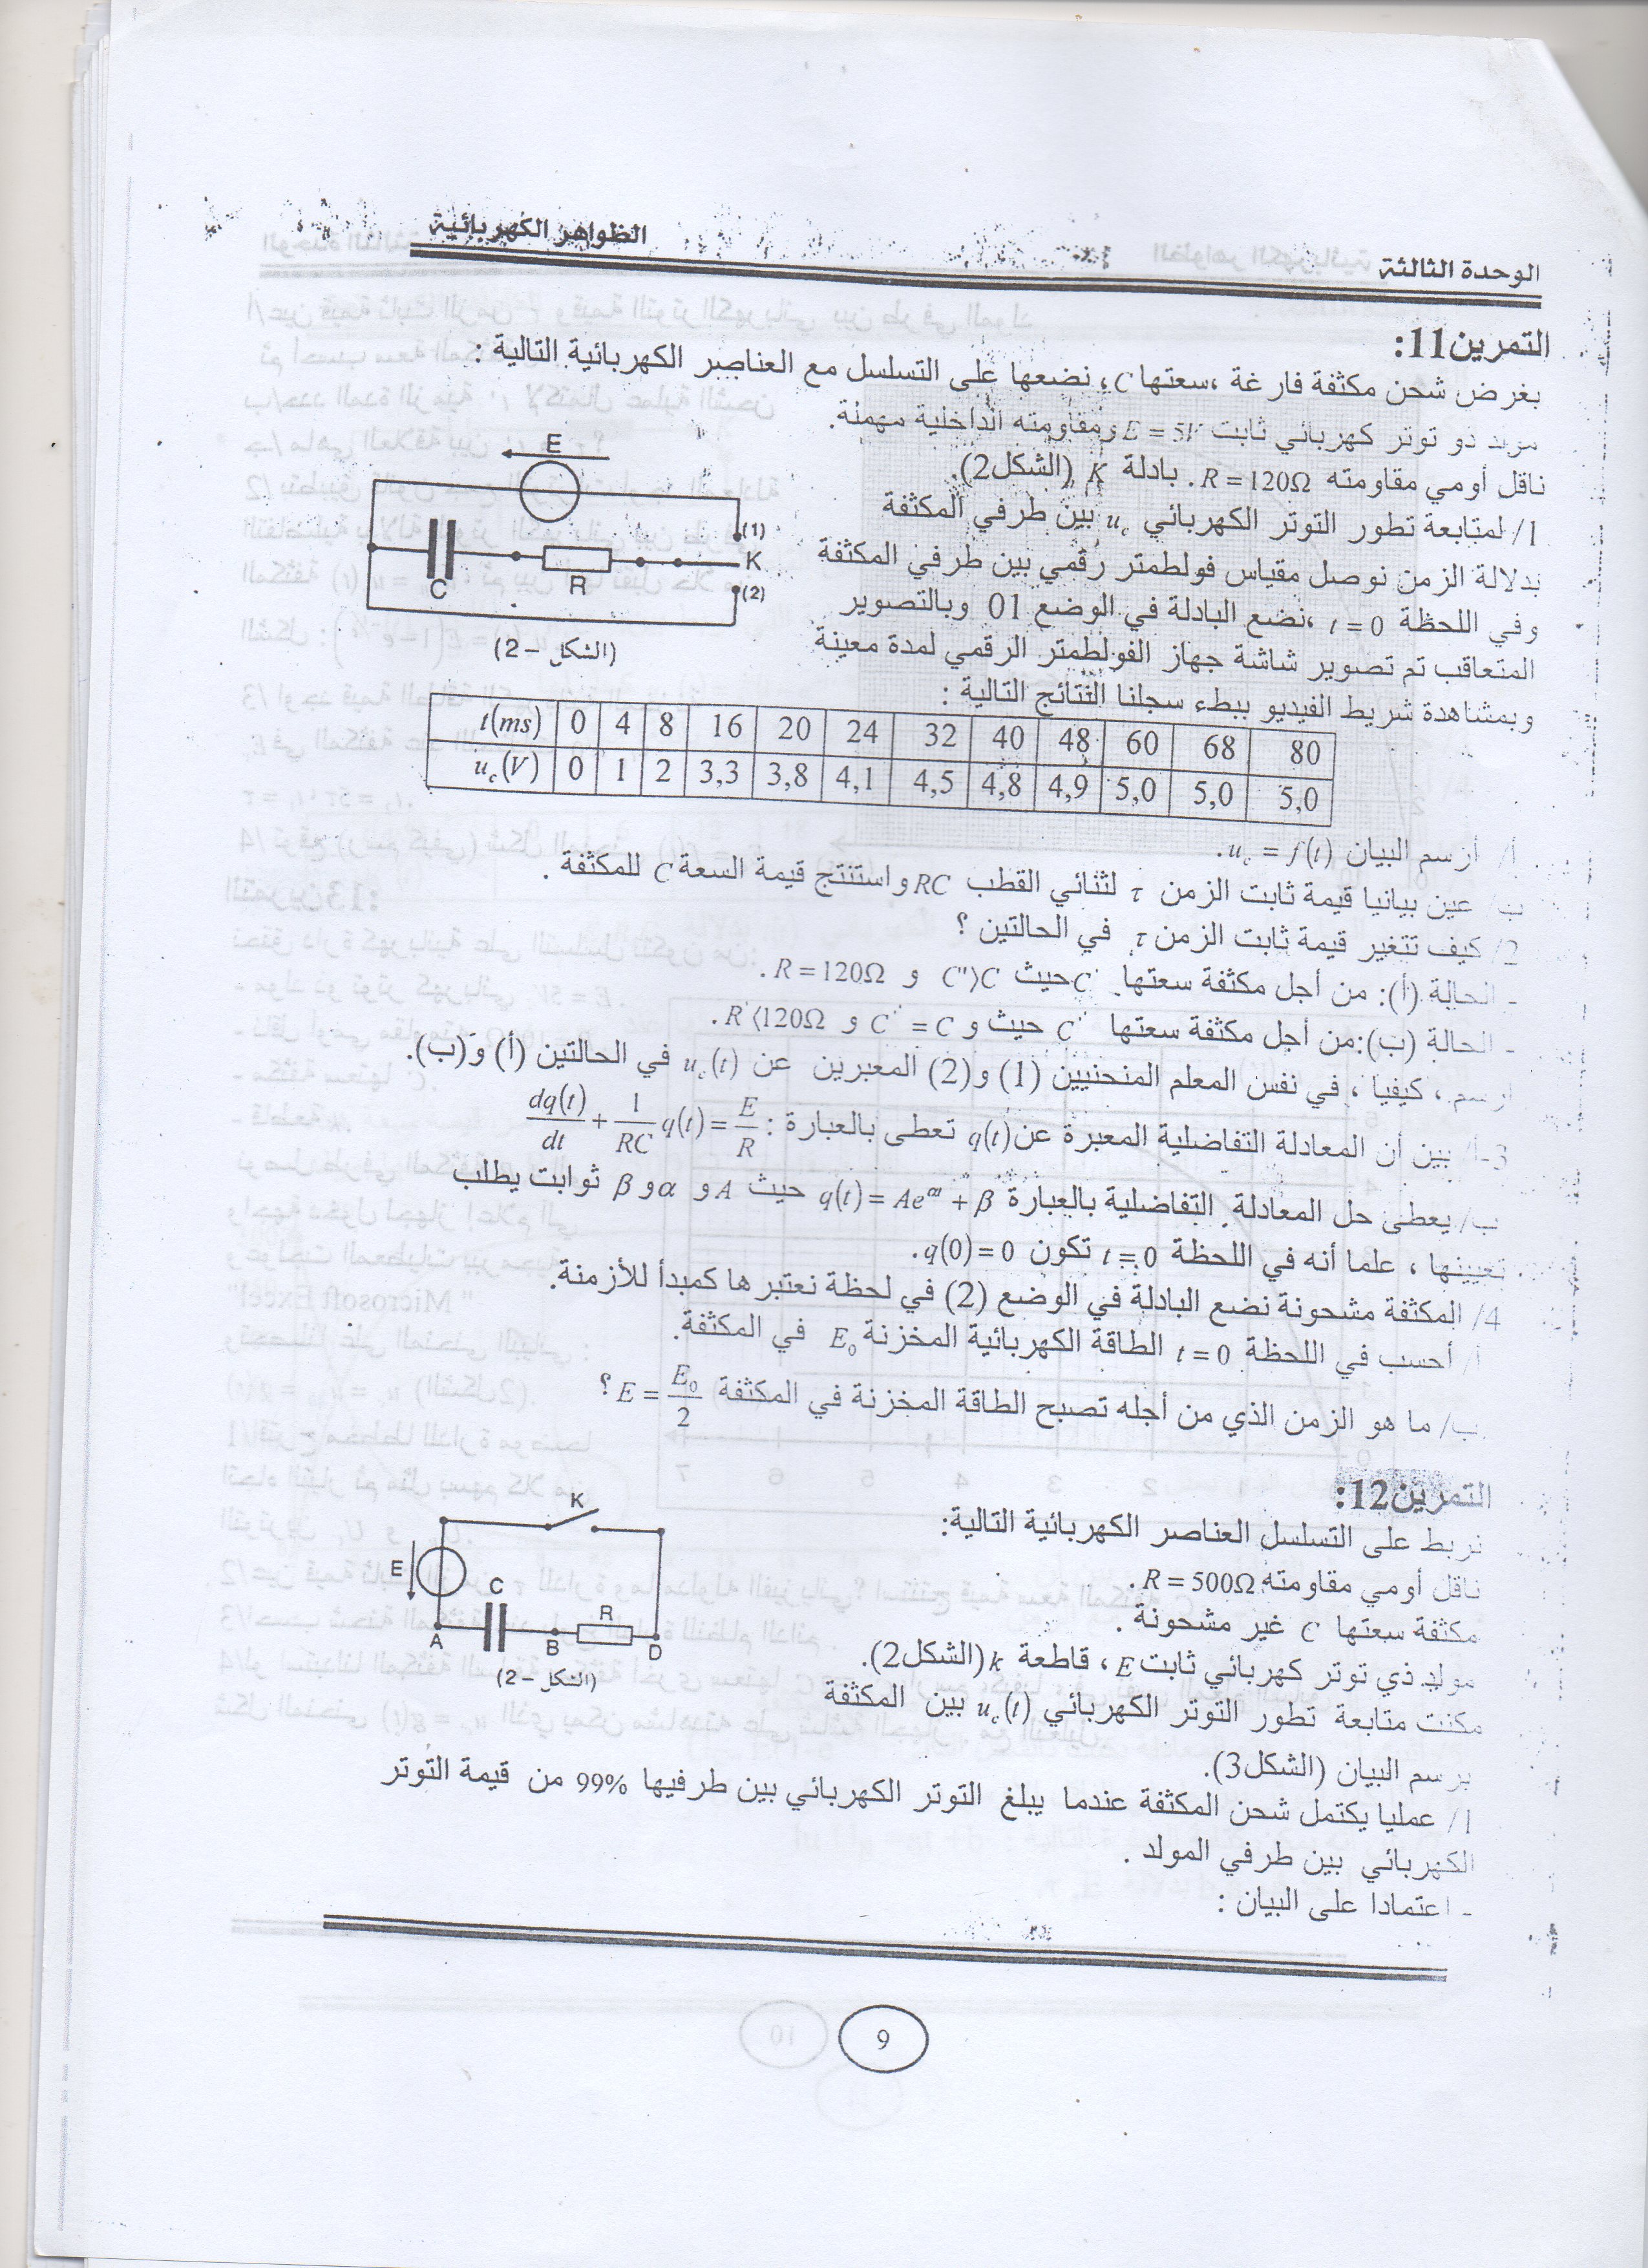 الوحدة الثالثة الظواهر الكهربائية
التمرين11:
بغرض شحن مكثفة فارغة ،سعتها C، نضعها على التسلسل مع العناصر الكهربائية التالية :
مولد ذو توتر كهربائي ثابت E = 5V ومقاومته الداخلية مهملة.
ناقل أومي مقاومته R = 120Ω . بادلة K (الشكل2).
1/ لمتابعة تطور التوتر الكهربائي u_c بين طرفي المكثفة
بدلالة الزمن نوصل مقياس فولطمتر رقمي بين طرفي المكثفة
وفي اللحظة t = 0 ،نضع البادلة في الوضع 01 وبالتصوير
المتعاقب تم تصوير شاشة جهاز الفولطمتر الرقمي لمدة معينة
وبمشاهدة شريط الفيديو ببطء سجلنا النتائج التالية :
E
(1)
K
(2)
C
R
(الشكل -2)
t(ms) 0 4 8 16 20 24 32 40 48 60 68 80
u_c(V) 0 1 2 3,3 3,8 4,1 4,5 4,8 4,9 5,0 5,0 5,0
أ/ أرسم البيان u_c = f(t).
ب/ عين بيانيا قيمة ثابت الزمن τ لثنائي القطب RC واستنتج قيمة السعة C للمكثفة .
2/ كيف تتغير قيمة ثابت الزمن τ في الحالتين ؟
- الحالة (أ): من أجل مكثفة سعتها C' حيث C'⟩C و R = 120Ω .
- الحالة (ب):من أجل مكثفة سعتها C' حيث و C' = C و R'⟨120Ω .
أرسم ، كيفيا ، في نفس المعلم المنحنيين (1) و(2) المعبرين عن u_c(t) في الحالتين (أ) و(ب).
3-أ/ بين أن المعادلة التفاضلية المعبرة عن q(t) تعطى بالعبارة : dq(t)/dt + 1/RC q(t) = E/R
ب/ يعطى حل المعادلة التفاضلية بالعبارة q(t) = Ae^{αt} + β حيث A و α و β ثوابت يطلب
تعيينها ، علما أنه في اللحظة t = 0 تكون q(0) = 0 .
4/ المكثفة مشحونة نضع البادلة في الوضع (2) في لحظة نعتبرها كمبدأ للأزمنة.
أ/ أحسب في اللحظة t = 0 الطاقة الكهربائية المخزنة E₀ في المكثفة.
ب/ ما هو الزمن الذي من أجله تصبح الطاقة المخزنة في المكثفة E = E₀/2 ؟
التمرين12:
نربط على التسلسل العناصر الكهربائية التالية:
ناقل أومي مقاومته R = 500Ω .
مكثفة سعتها C غير مشحونة .
مولد ذي توتر كهربائي ثابت E ، قاطعة k (الشكل2).
مكنت متابعة تطور التوتر الكهربائي u_c(t) بين المكثفة
برسم البيان (الشكل3).
K
E
C
R
A
B
D
(الشكل -2)
1/ عمليا يكتمل شحن المكثفة عندما يبلغ التوتر الكهربائي بين طرفيها 99% من قيمة التوتر
الكهربائي بين طرفي المولد .
- اعتمادا على البيان :
9
10